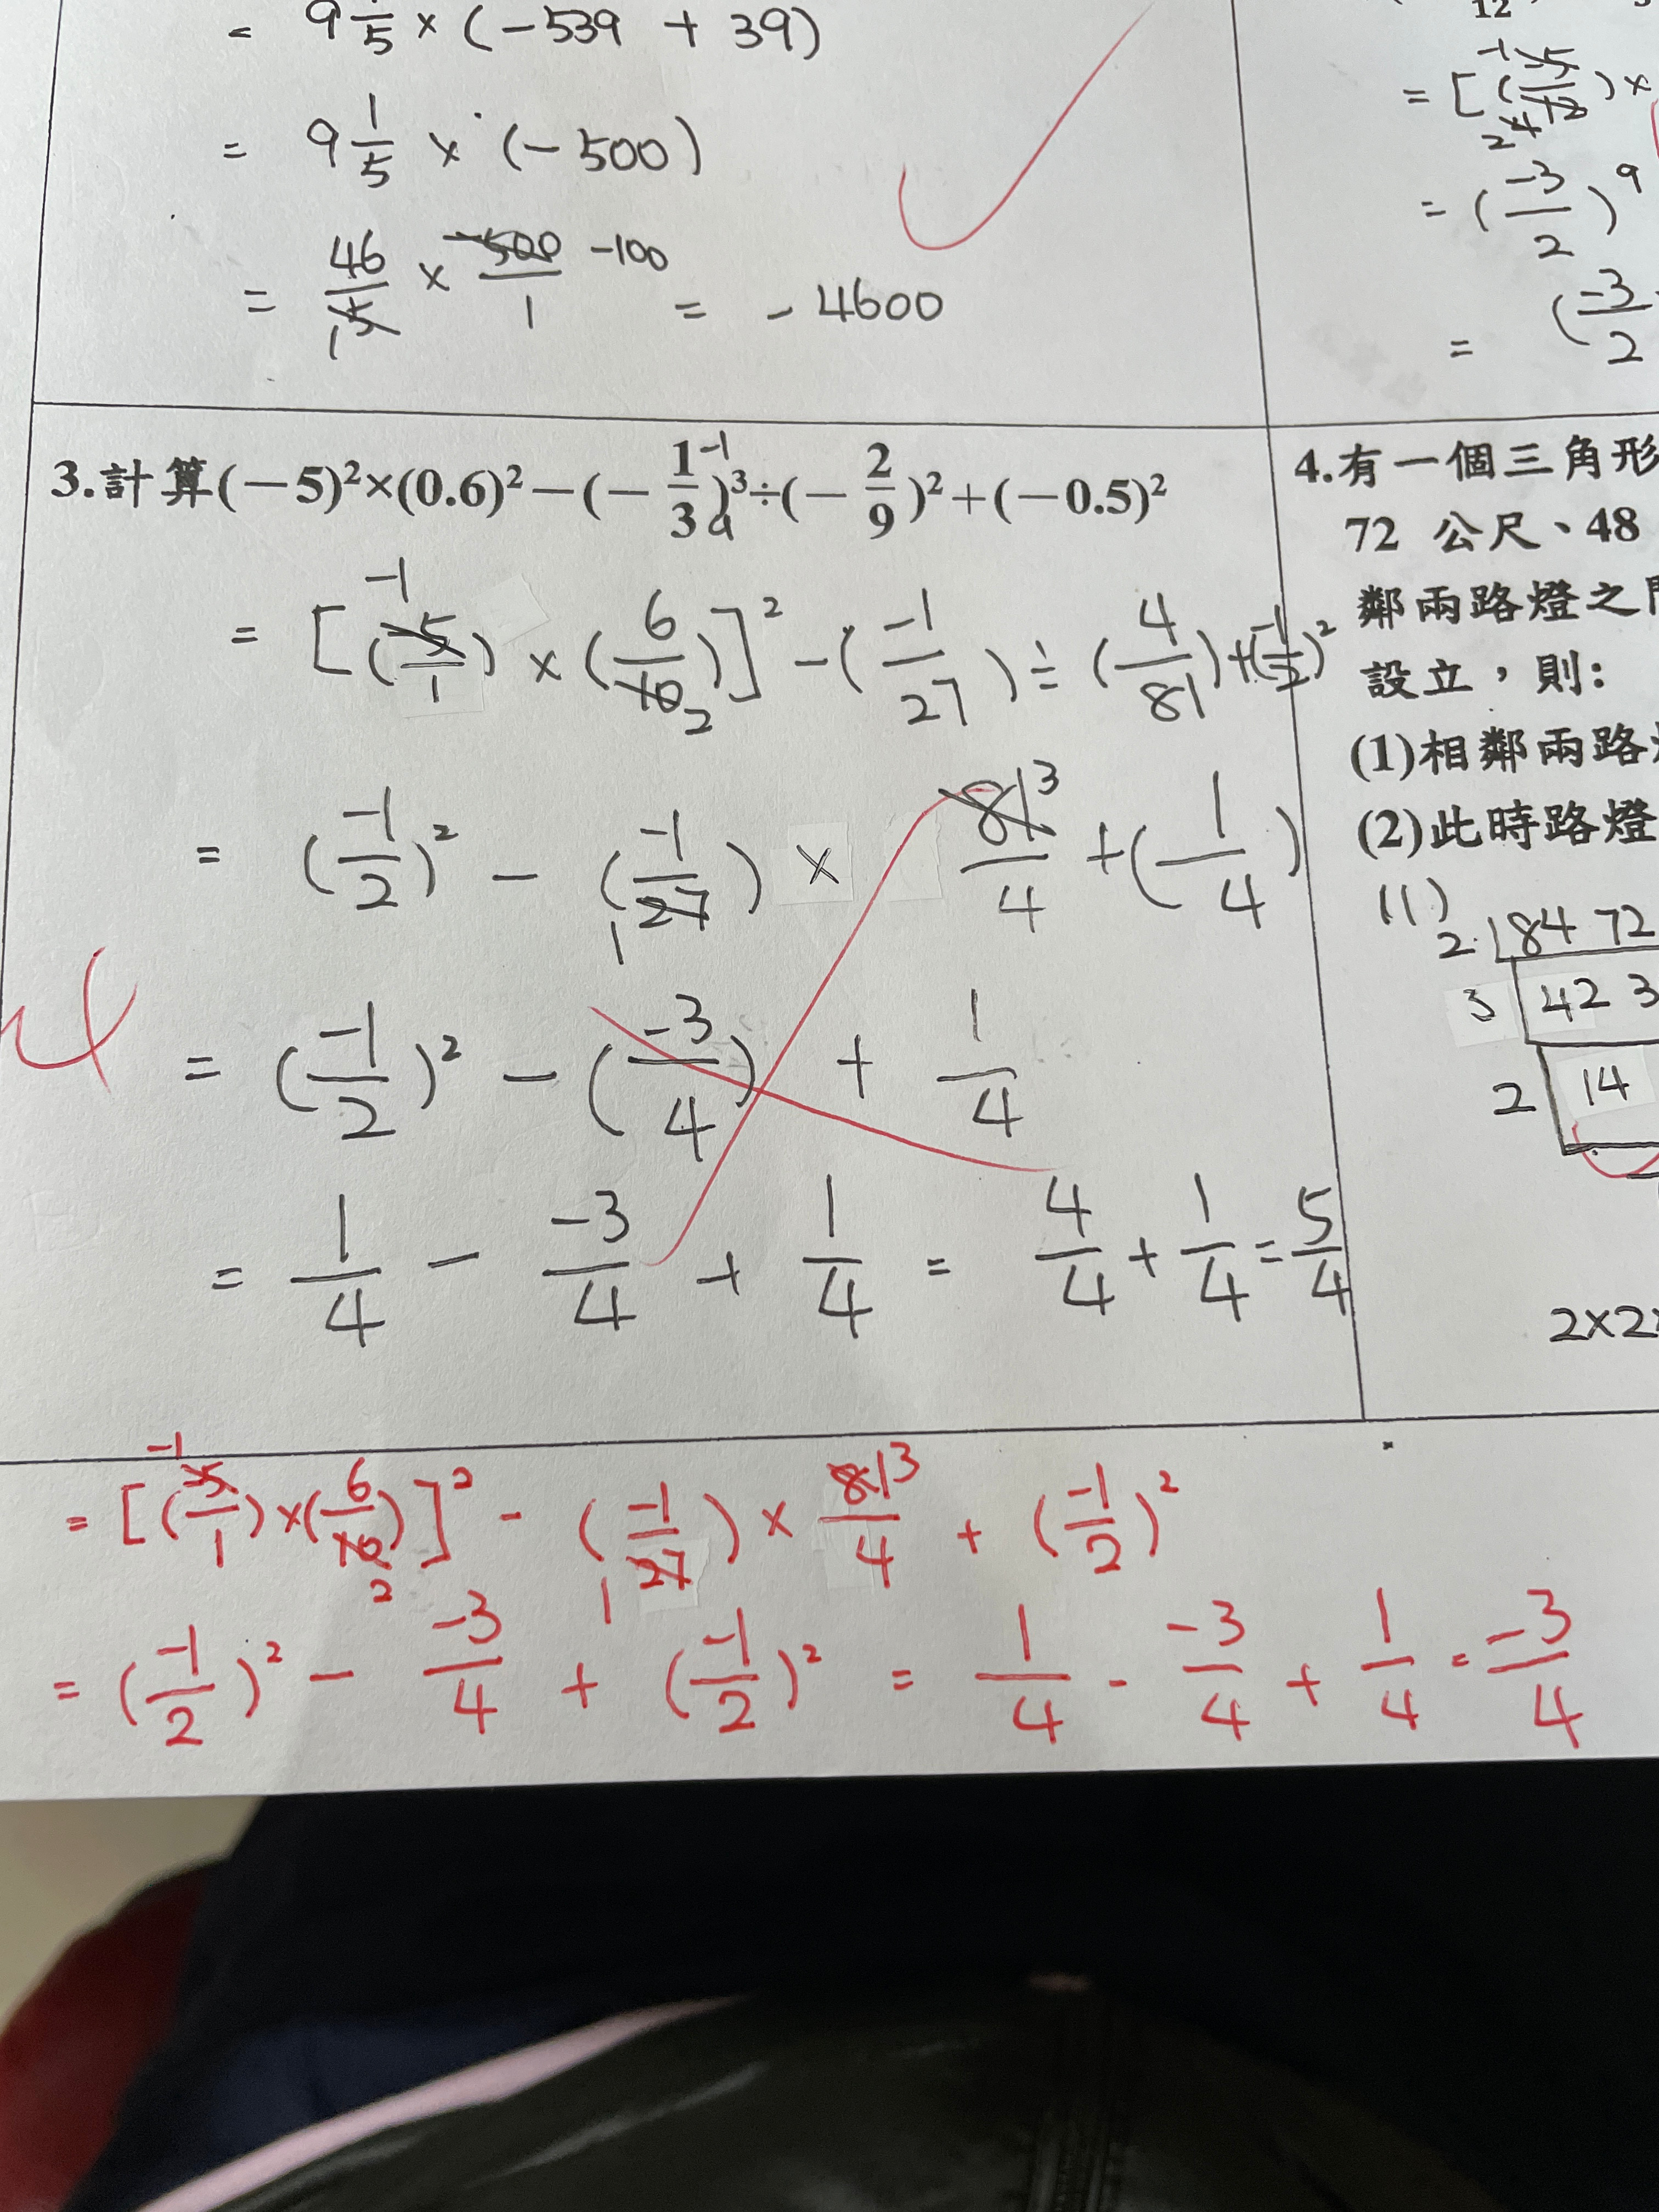 = 9 1/5 × (-539 + 39)
= 9 1/5 × (-500)
= 46/5 1 × -500/1 -100 = -4600
12
= [(-5/12)×
-1
2 4
= (-3/2)9
= (-3/2
3.計算(-5)²×(0.6)²-(-1/3)³÷(-2/9)²+(-0.5)²
-1
= [(-5/1)×(6/10)]²-(-1/27)÷(4/81)+(-1/2)²
-1
2
= (-1/2)² - (-1/27) × 81/4 + (1/4)
1
3
= (-1/2)² - (-3/4) + 1/4
= 1/4 - -3/4 + 1/4 = 4/4 + 1/4 = 5/4
4.有一個三角形
72 公尺、48
鄰兩路燈之
設立,則:
(1)相鄰兩路
(2)此時路燈
(1)
2 84 72
3 42 3
2 14
2×2
-4
= [(-5/1)×(6/10)]² - (-1/27) × 81/4 + (-1/2)²
-1
2
1
3
= (-1/2)² - -3/4 + (-1/2)² = 1/4 - -3/4 + 1/4 = -3/4